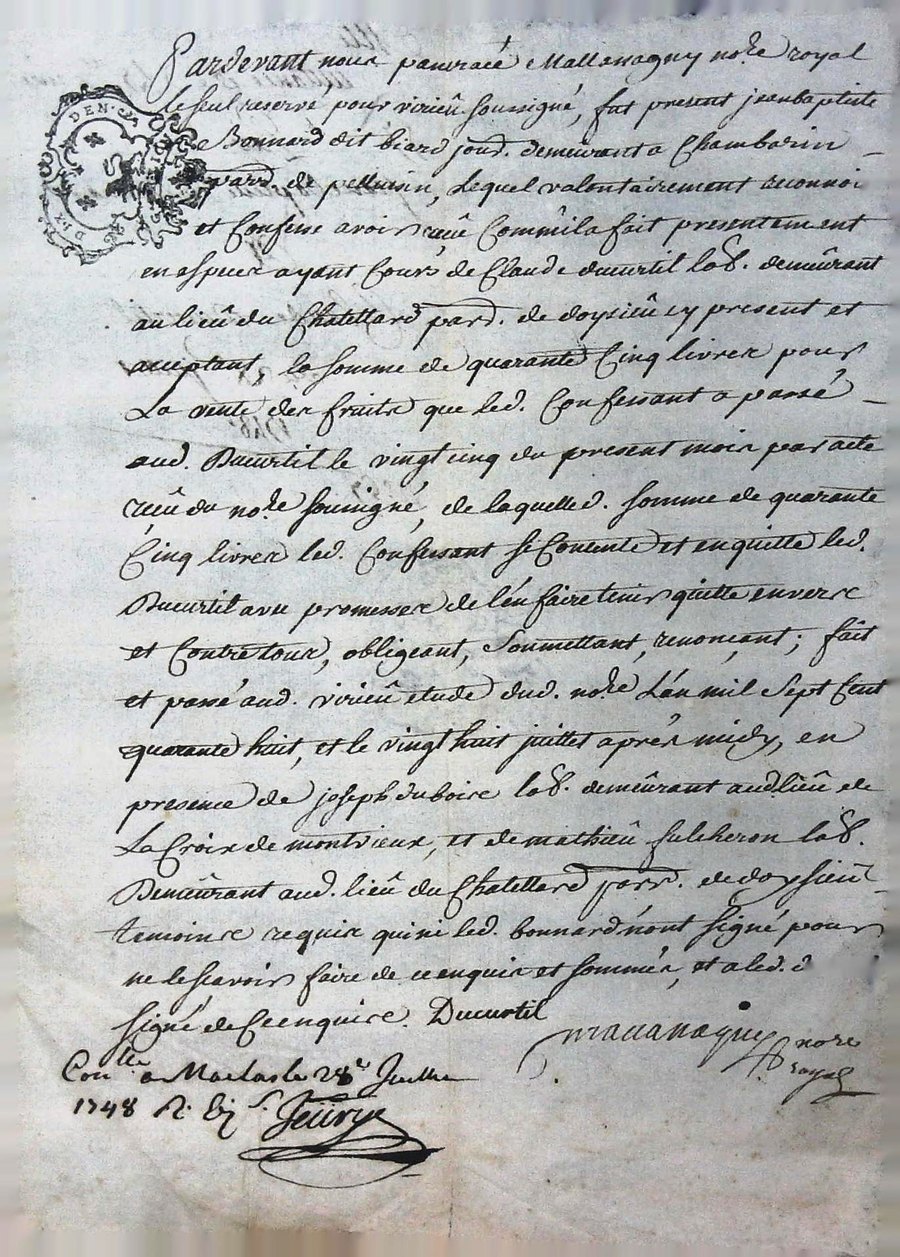 Pardevant nous pancracé Mallanagny nore royal
le seul reservé pour virieu soussigné, fut present jeanbaptiste
Bonnard dit biard jourd. demeurant a Chambarin
parr. de pellussin, lequel valontairement reconnoi
et Confesse avoir reçû Comm'il a fait presentement
en espece ayant Cours de Claude ducurtil lab. demeûrant
au lieû du Chatellard parr. de doysieû cy present et
acceptant, la somme de quarante Cinq livres pour
La vente des fruits que led. Confessant a passé
aud. Ducurtil le vingtcinq du present mois par acte
reçû du nore soussigné, de laquelle d. somme de quarante
Cinq livres led. Confessant se Contente et en quitte led.
Ducurtil avec promesse de l'en faire tenir quitte envers
et Contre tous, obligeant, soumettant, renonçant; fait
et passé aud. virieû etude dud. nore L'an mil sept Cent
quarante huit, et le vingt huit juillet après midy, en
presence de joseph duboire lab. demeûrant aud. lieû de
La Croix de montvieux, et de mathieû fulcheron lab.
Demeûrant aud. lieu du Chatellard parr. de doysieû
temoins requis qui ni led. bonnard n'ont signé pour
ne le scavoir faire de ce enquis et sommés, et a led. d
signé de Ce enquis. Ducurtil
Mallanagny nore
royal
Conlle a Maclas le 28e Juillet
1748 R. Six s. Jeury
DEN